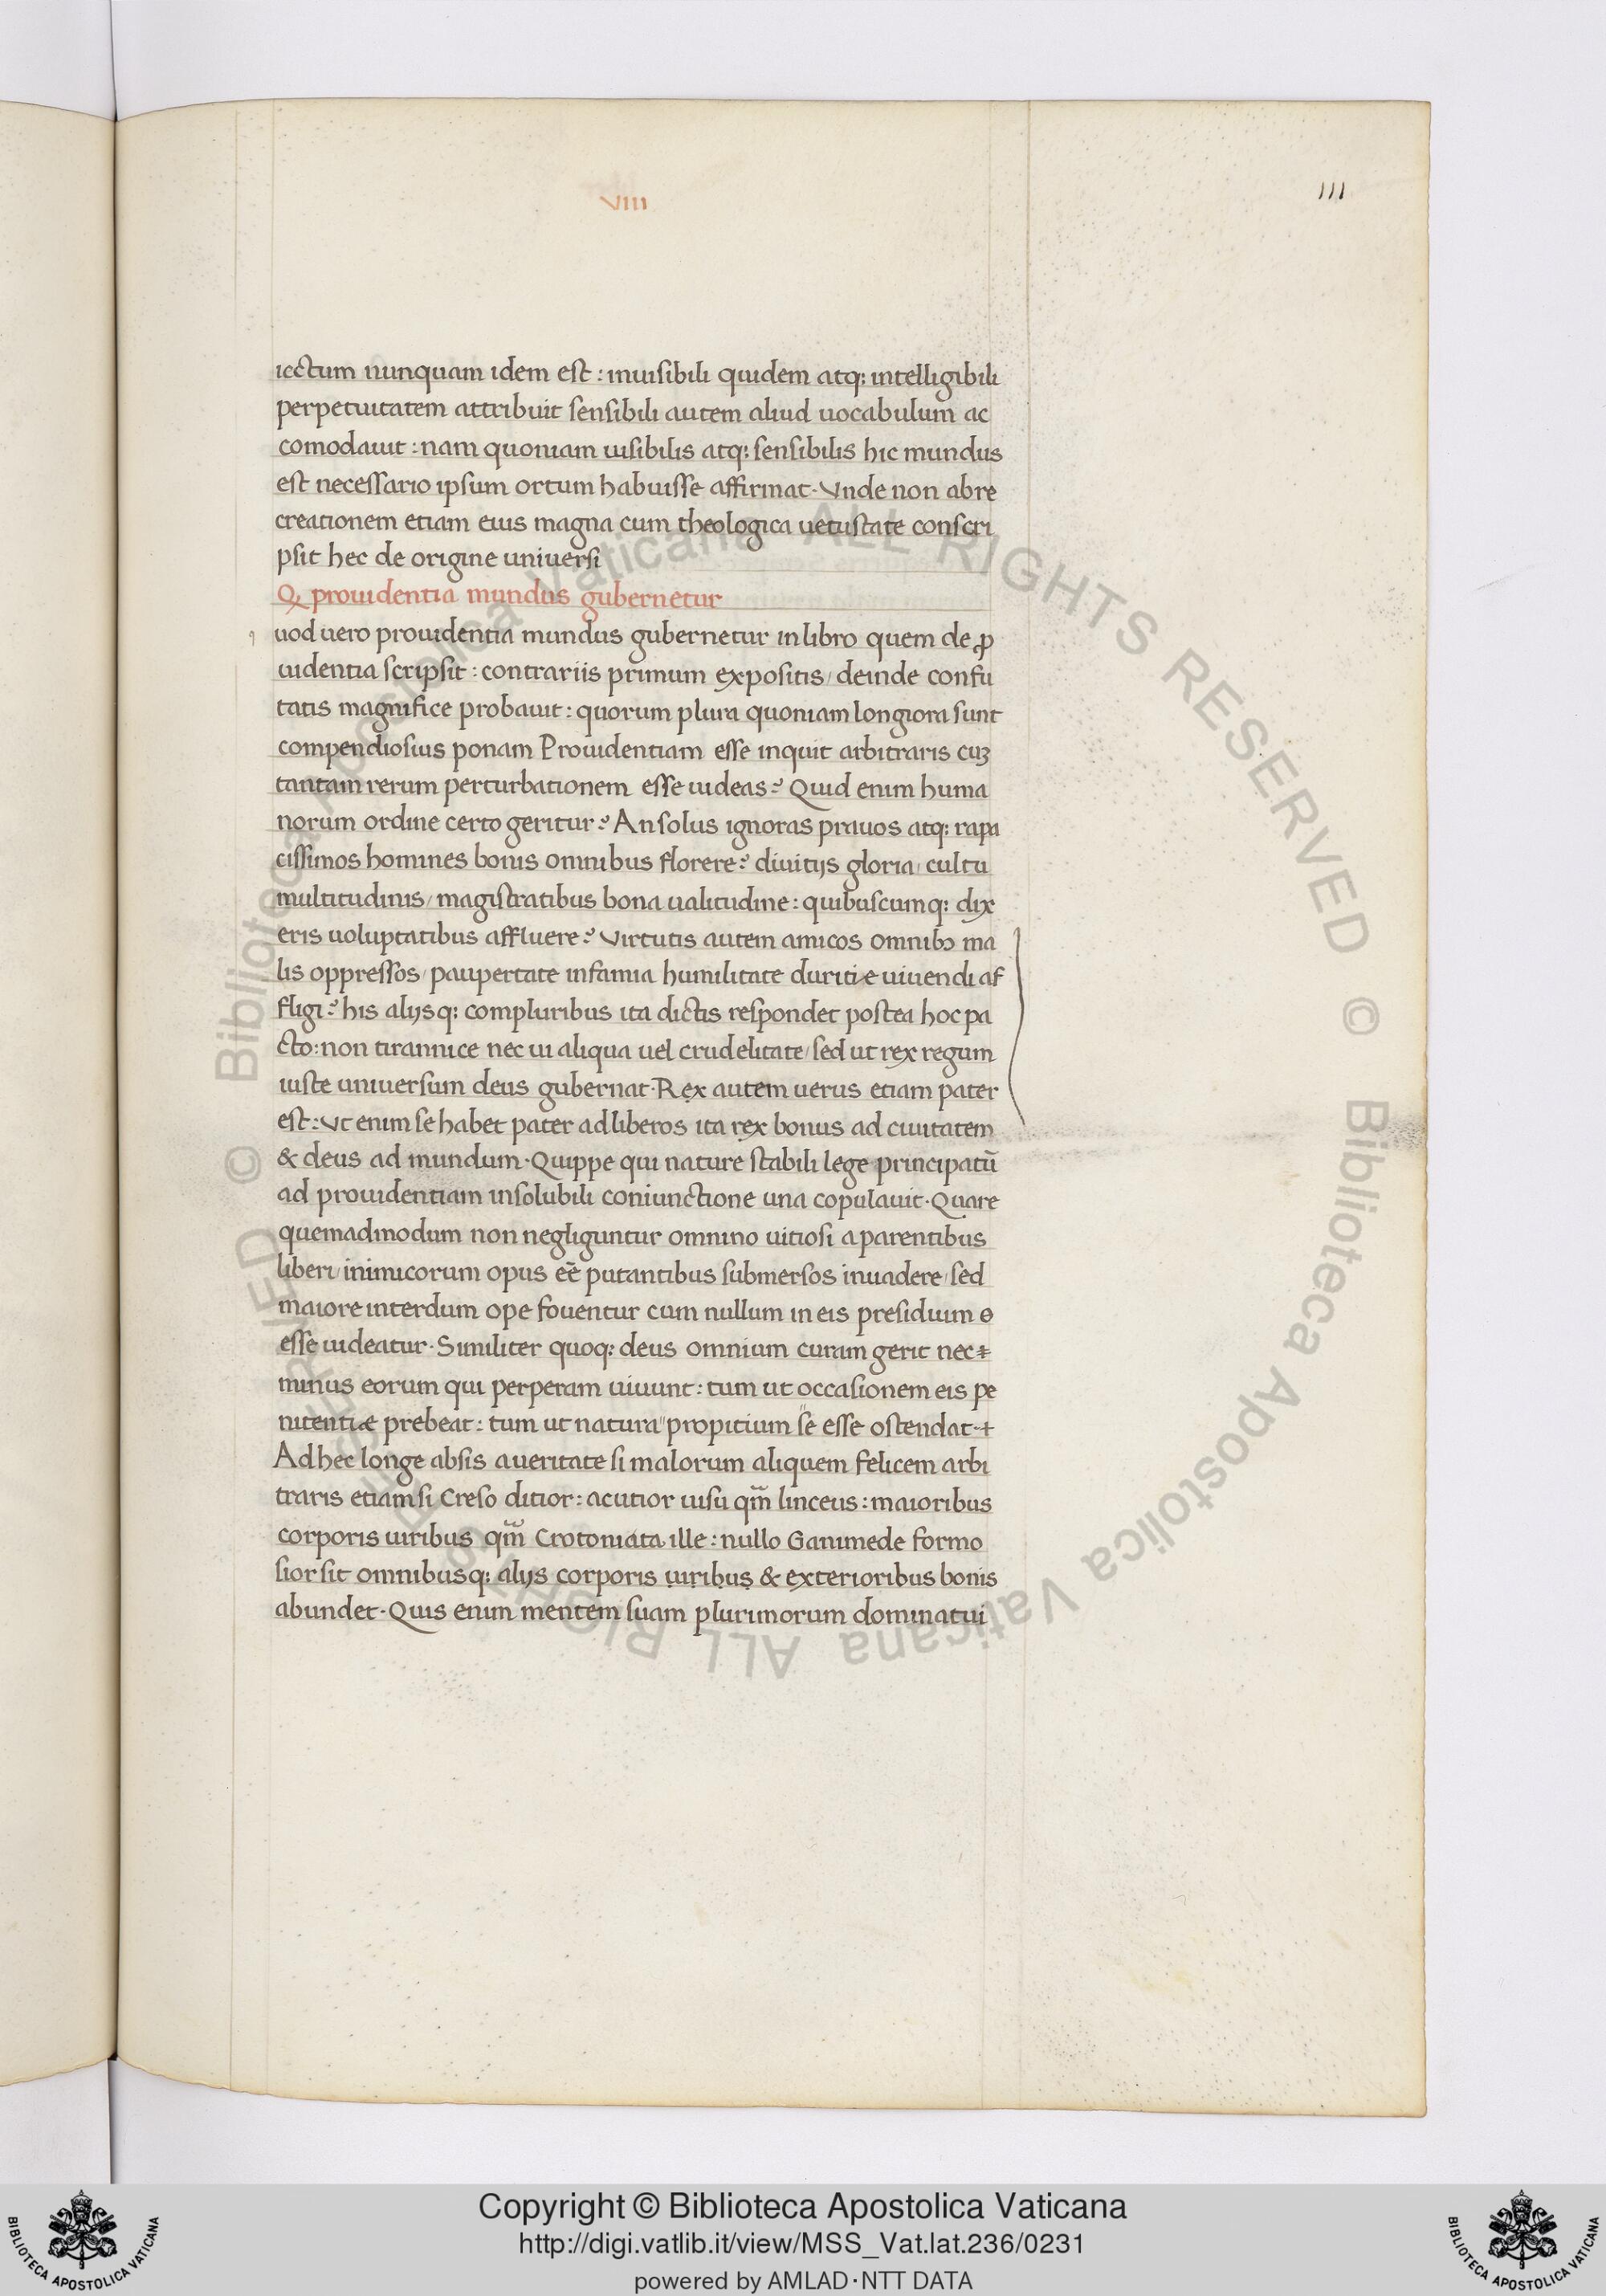 VIII
III
iectum nunquam idem est: inuisibili quidem atq; intelligibili
perpetuitatem attribuit sensibili autem aliud uocabulum ac
comodauit: nam quoniam uisibilis atq; sensibilis hic mundus
est necessario ipsum ortum habuisse affirmat. Vnde non abre
creationem etiam eius magna cum theologica uetustate conscri
psit hec de origine universi
Q prouidentia mundus gubernetur
uod uero prouidentia mundus gubernetur in libro quem de ꝓ
uidentia scripsit: contrariis primum expositis/ deinde confu
tatis magnifice probauit: quorum plura quoniam longiora sunt
compendiosius ponam Prouidentiam esse inquit arbitraris cuꝫ
tantam rerum perturbationem esse uideas? Quid enim huma
norum ordine certo geritur? An solus ignoras prauos atq; rapa
cissimos homines bonis omnibus florere? diuitijs gloria/ cultu
multitudinis/ magistratibus bona ualitudine: quibuscumq; dix
eris uoluptatibus affluere? Virtutis autem amicos omnibꝫ ma
lis oppressos/ paupertate infamia humilitate duritie uiuendi af
fligi? his alijsq; compluribus ita dictis respondet postea hoc pa
cto: non tirannice nec ui aliqua uel crudelitate/ sed ut rex regum
iuste uniuersum deus gubernat. Rex autem uerus etiam pater
est: Vt enim se habet pater ad liberos ita rex bonus ad ciuitatem
& deus ad mundum. Quippe qui nature stabili lege principatū
ad prouidentiam insolubili coniunctione una copulauit. Quare
quemadmodum non negliguntur omnino uitiosi a parentibus
liberi/ inimicorum opus eē putantibus submersos inuadere/ sed
maiore interdum ope fouentur cum nullum in eis presidium
esse uideatur. Similiter quoq; deus omnium curam gerit nec
minus eorum qui perperam uiuunt: tum ut occasionem eis pe
nitentiæ prebeat: tum ut natura" propitium "se esse ostendat.
Ad hec longe absis a ueritate si malorum aliquem felicem arbi
traris etiam si Creso ditior: acutior uisu qm̄ linceus: maioribus
corporis uiribus qm̄ Crotoniata ille: nullo Ganimede formo
sior sit omnibusq; alijs corporis uiribus & exterioribus bonis
abundet. Quis enim mentem suam plurimorum dominatui
© Biblioteca Apostolica Vaticana ALL RIGHTS RESERVED © Biblioteca Apostolica Vaticana ALL RIGHTS RESERVED
Copyright © Biblioteca Apostolica Vaticana
http://digi.vatlib.it/view/MSS_Vat.lat.236/0231
powered by AMLAD·NTT DATA
BIBLIOTECA APOSTOLICA VATICANA
BIBLIOTECA APOSTOLICA VATICANA